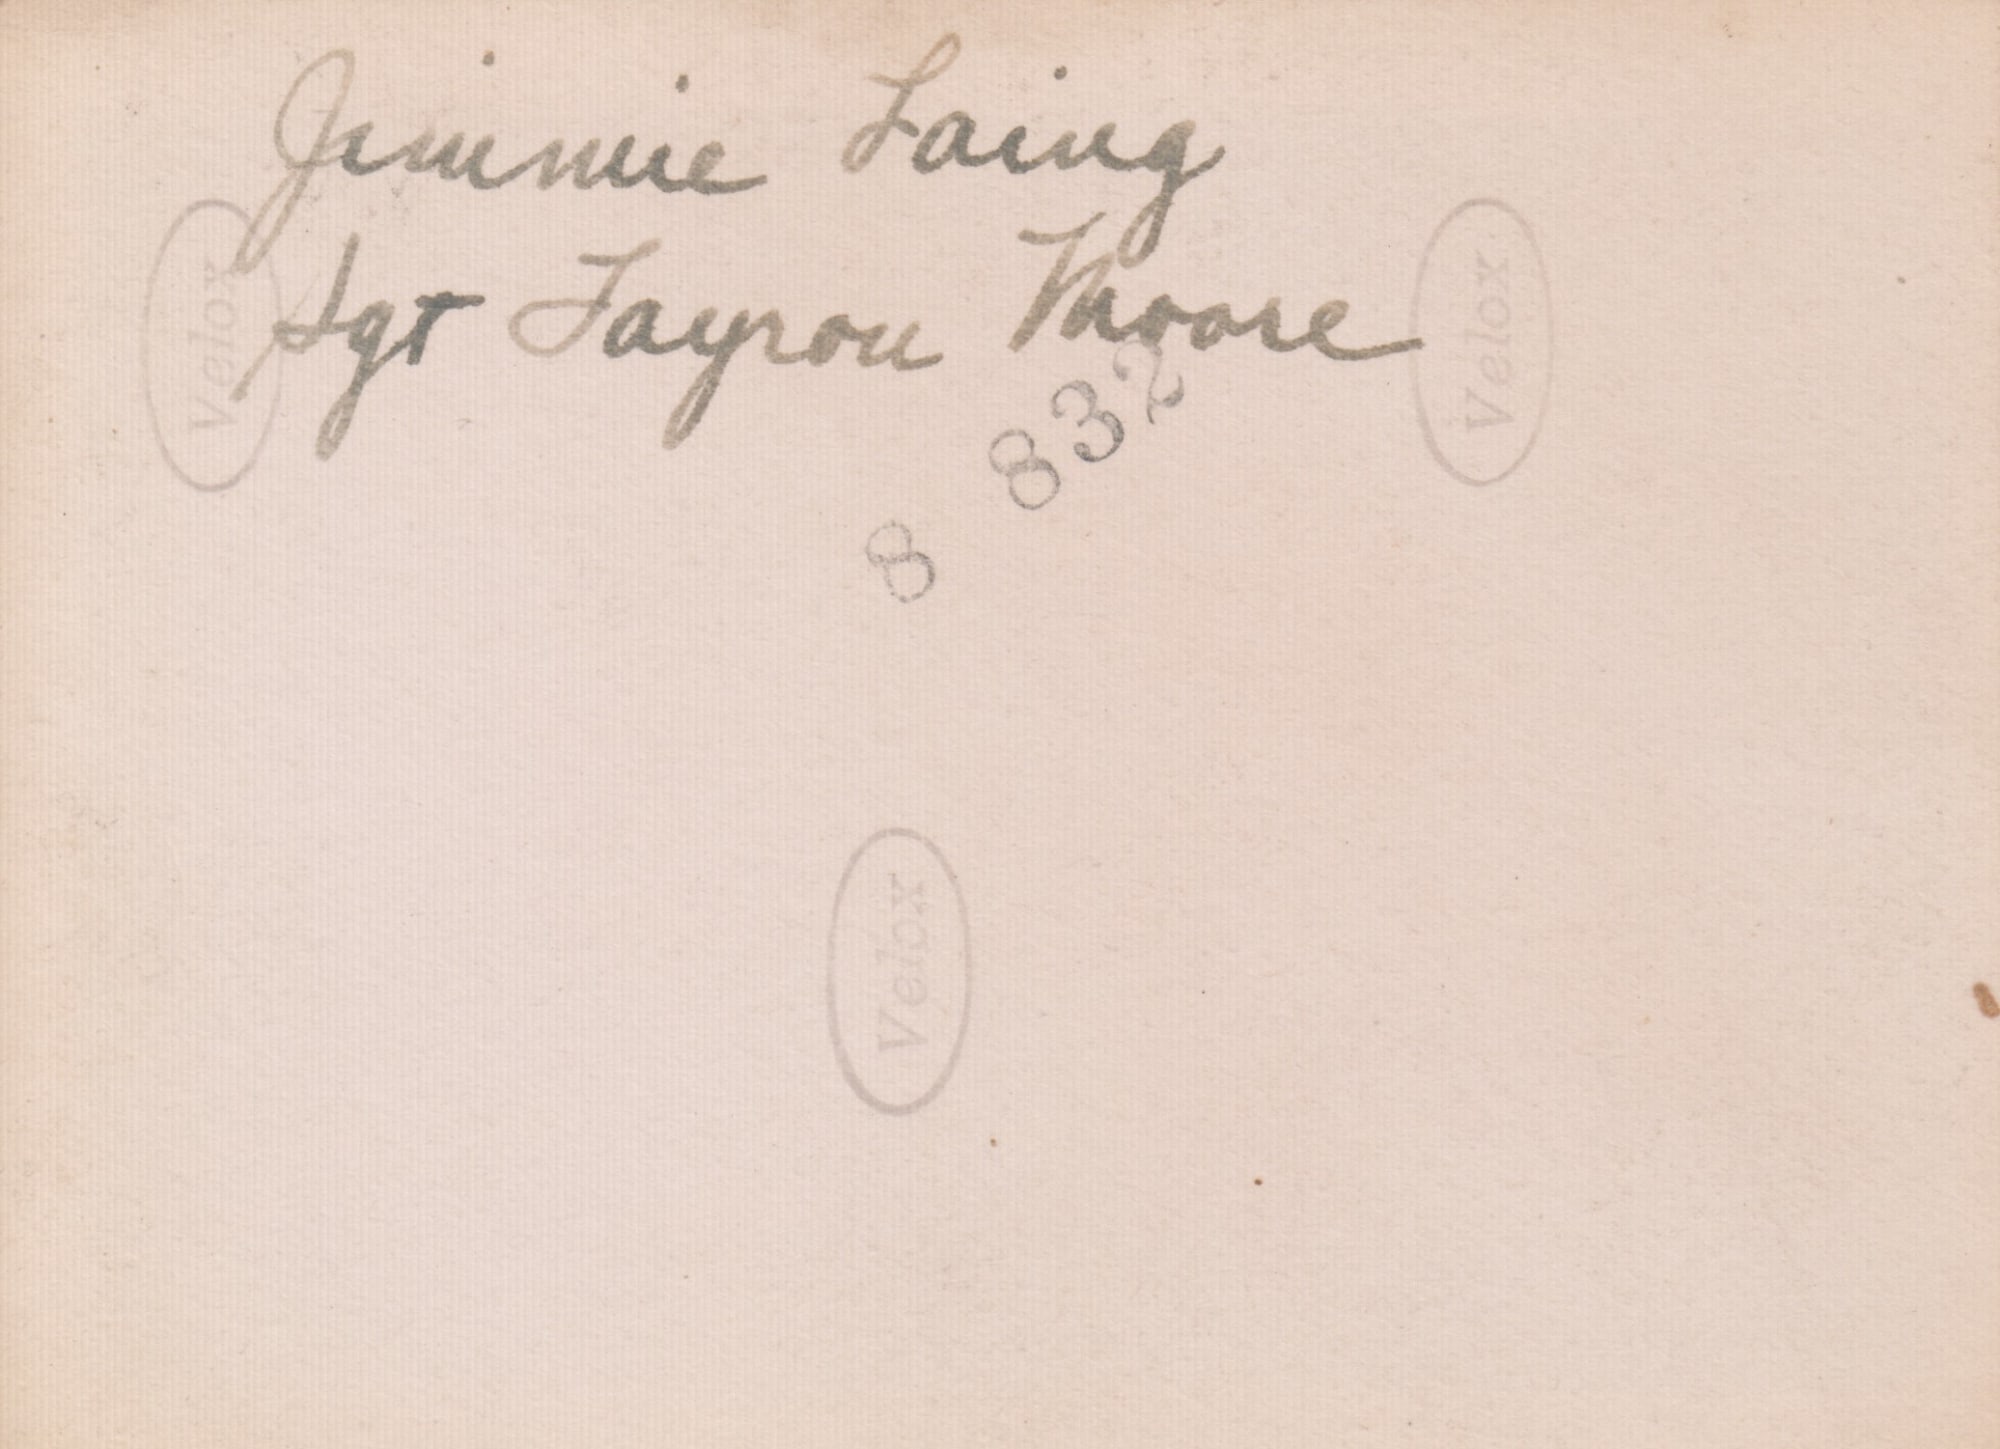 Jimmie Laing
Sgt Tayron Moore
Velox
Velox
8 832
Velox